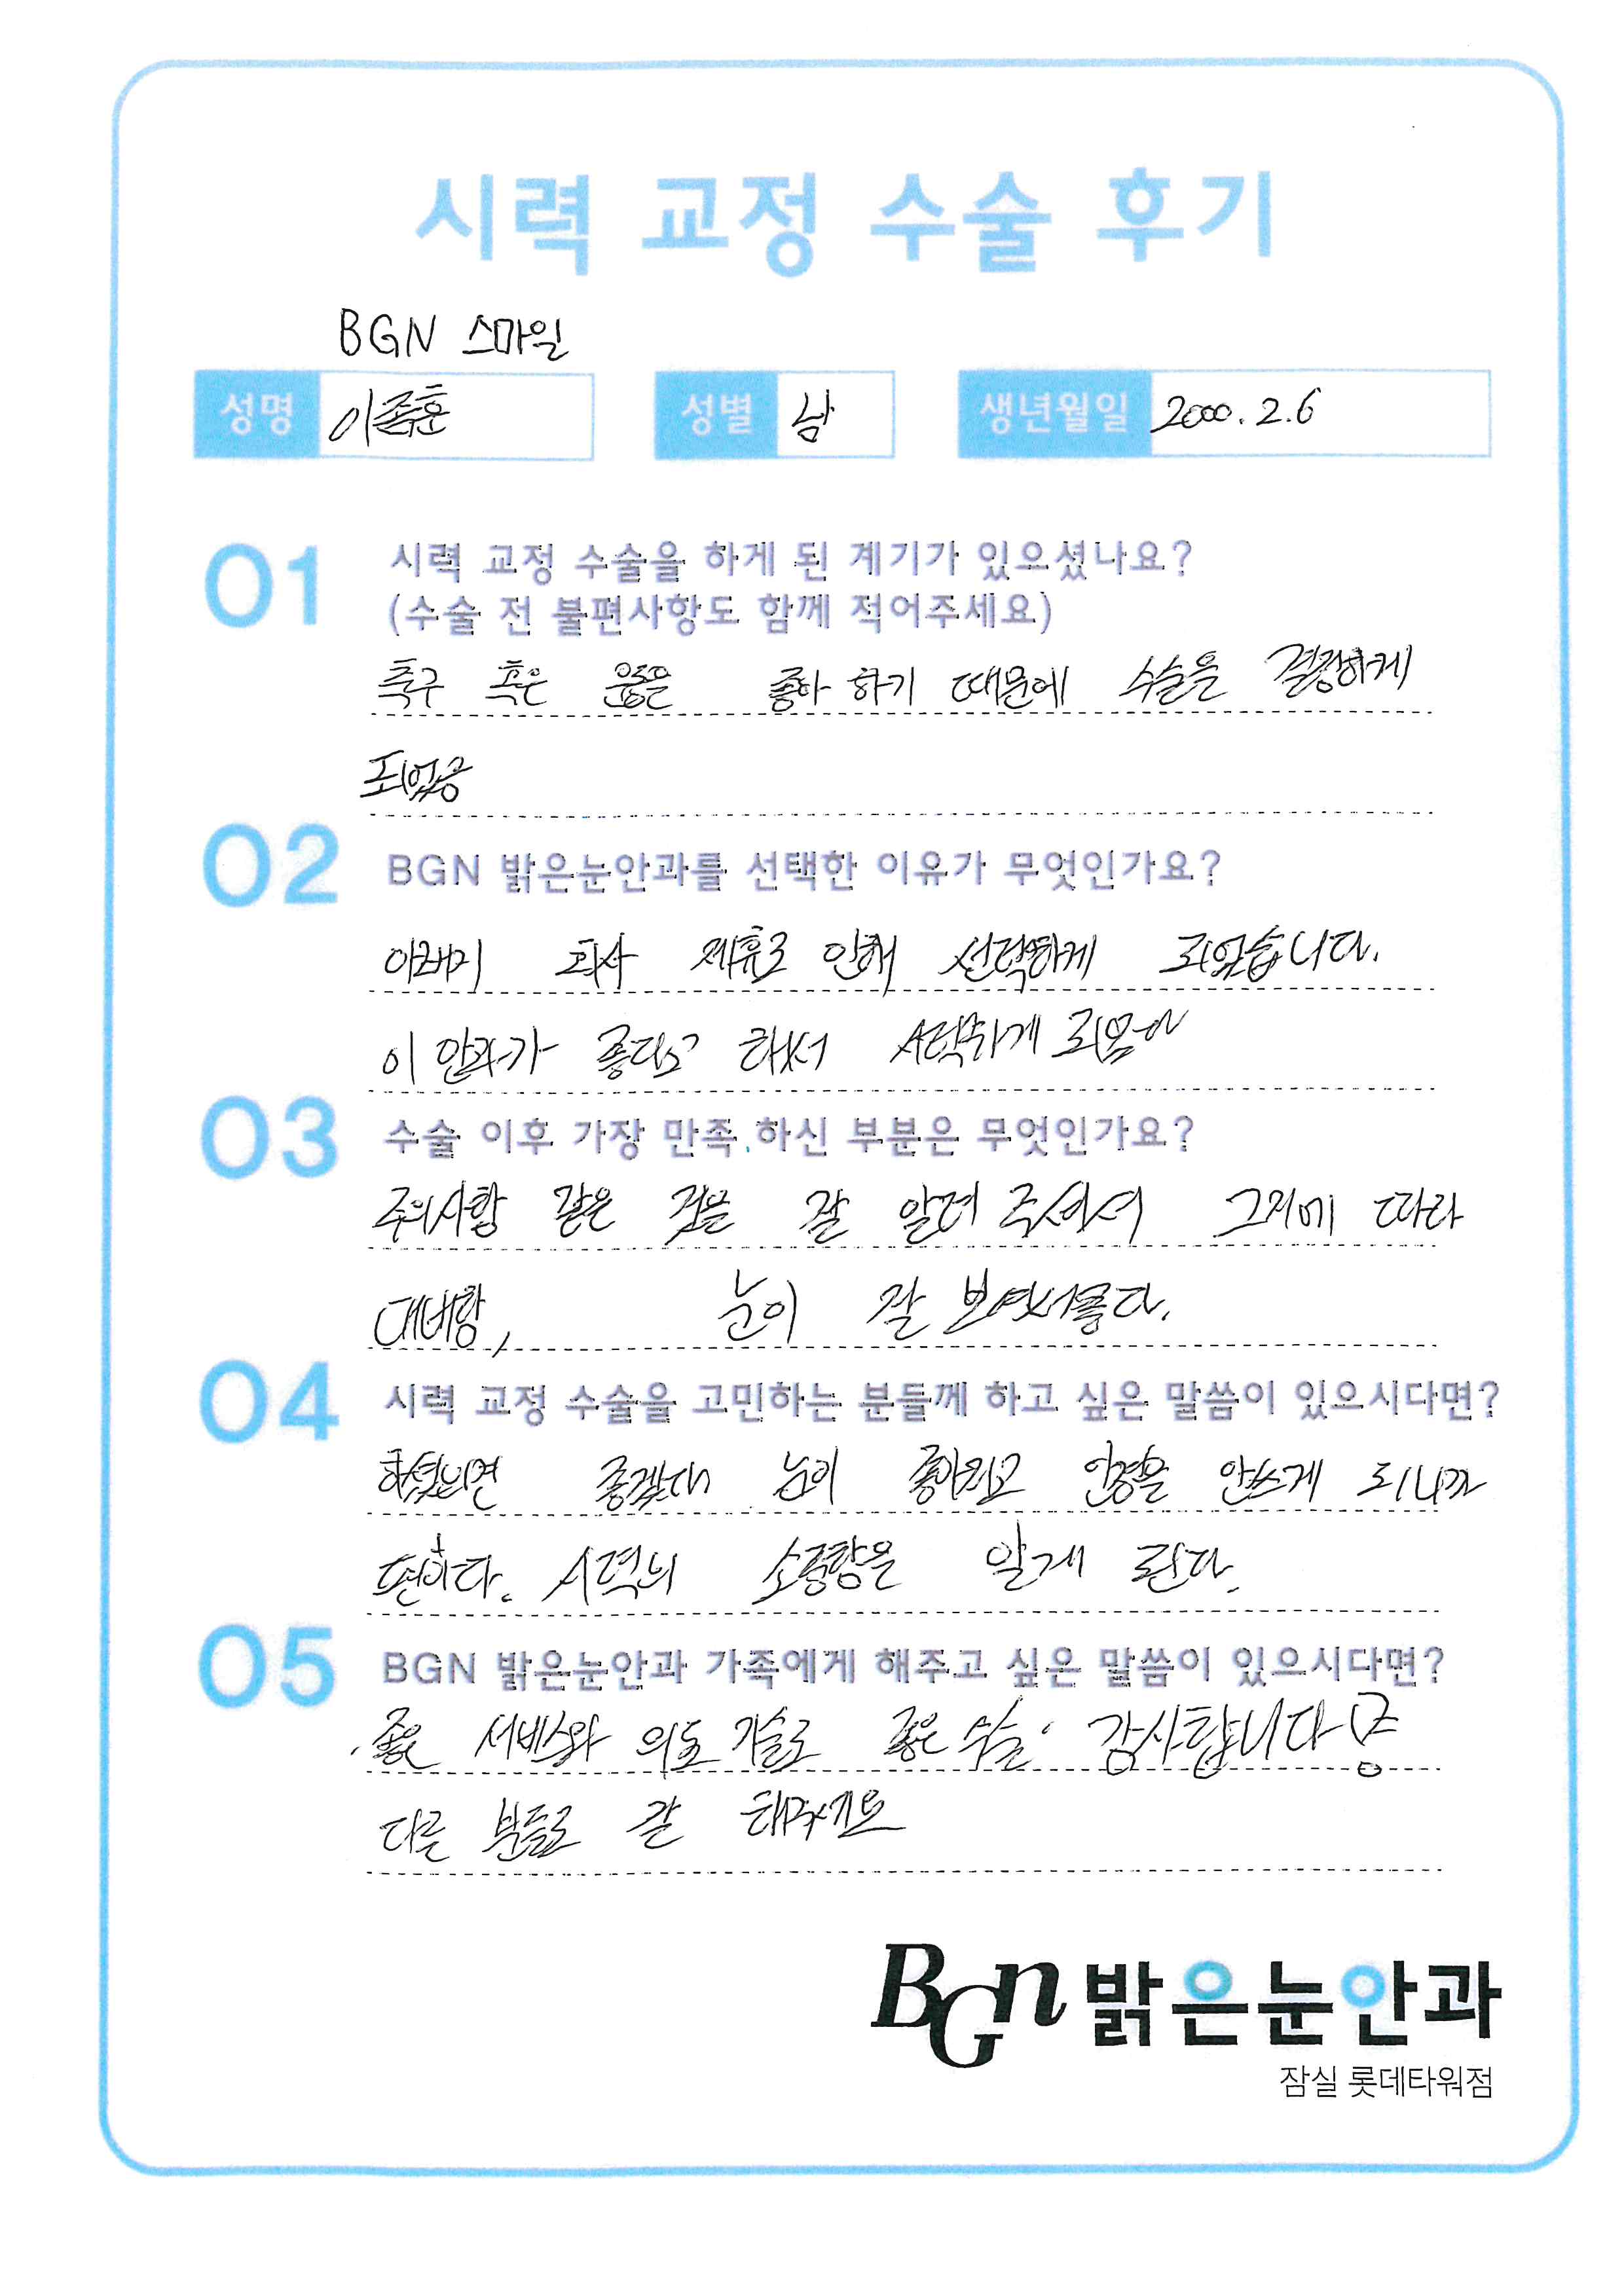 시력 교정 수술 후기
BGN 스마일
성명 이종훈 성별 남 생년월일 2000.2.6
01 시력 교정 수술을 하게 된 계기가 있으셨나요?
(수술 전 불편사항도 함께 적어주세요)
축구 혹은 운동은 좋아 하기 때문에 수술을 결정하게
되었공
02 BGN 밝은눈안과를 선택한 이유가 무엇인가요?
회사 제휴로 인해 선택하게 되었습니다.
이 안과가 좋다고 해서
03 수술 이후 가장 만족 하신 부분은 무엇인가요?
주의사항 같은 것을 잘 알려 주셔서 그거에 따라
눈이 잘
04 시력 교정 수술을 고민하는 분들께 하고 싶은 말씀이 있으시다면?
눈이 좋아지고 안경을 안쓰게 되니까
편하다. 시력의 소중함을 알게 된다.
05 BGN 밝은눈안과 가족에게 해주고 싶은 말씀이 있으시다면?
좋은 서비스와 의도 기술로 좋은 수술. 감사합니다
다른 분들도 잘 해주세요
BGN 밝은눈안과
잠실 롯데타워점